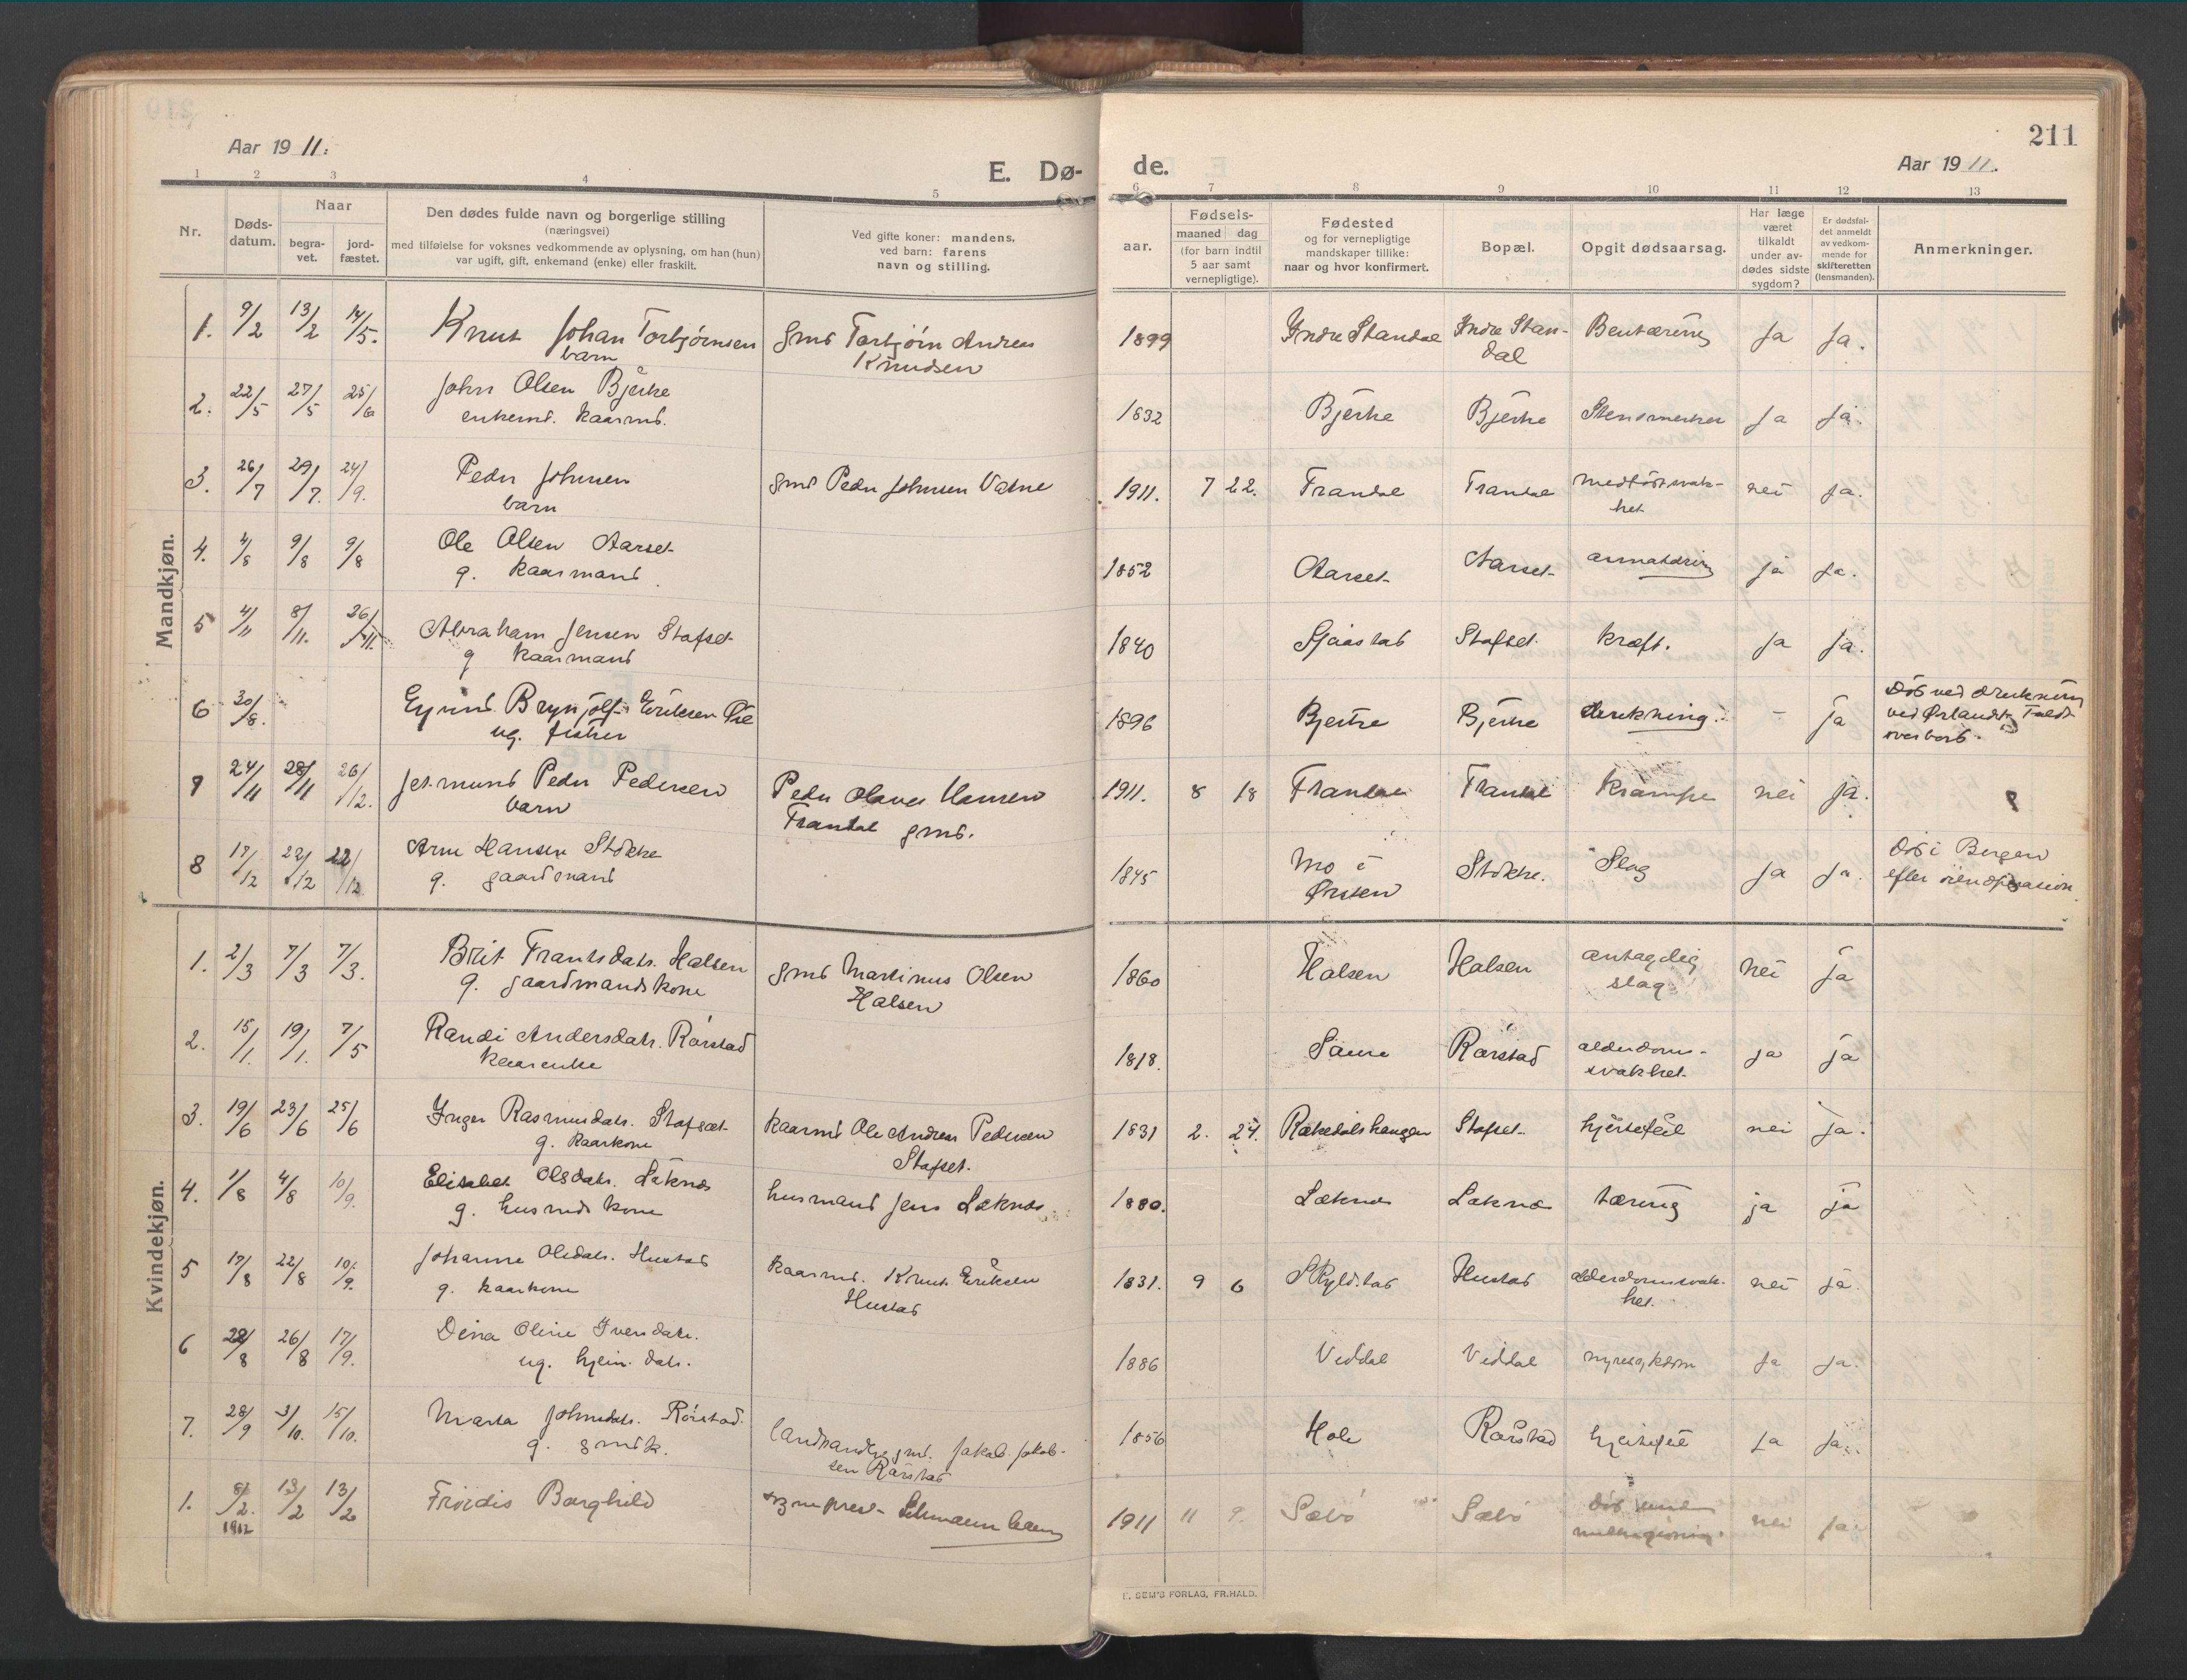 Aar 19 11.
E. Dø-
1 2 3 4 5
Nr.
Døds-
datum.
Naar
begra-
vet.
jord-
fæstet.
Den dødes fulde navn og borgerlige stilling
(næringsvei)
med tilføielse for voksnes vedkommende av oplysning, om han (hun)
var ugift, gift, enkemand (enke) eller fraskilt.
Ved gifte koner: mandens,
ved barn: farens
navn og stilling.
Mandkjøn.
1. 9/2 13/2 14/5. Knut Johan Torbjørnsen gmd Torbjørn Andreas
barn Knudsen
2. 22/5 27/5 25/6 John Olsen Bjerke
enkemd. kaarmd.
3. 26/7 29/7. 24/9. Peder Johnsen gmd Peder Johnsen Vatne
barn
4. 4/8 9/8 9/8 Ole Olsen Aarset
g. kaarmand
5 4/11 8/11. 26/11. Abraham Jensen Stafset
g kaarmand
6 30/8. Eyvind Brynjolf Eriksen
ug. fisker
7 24/11 28/11 26/12. Jetmund Peder Pedersen Peder Olaves Hansen
barn Trandal gmd.
8 17/12 22/12 22/12 Arne Hansen Stokke
g. gaardmand
Kvindekjøn.
1. 2/3 7/3 7/3. Brit Frantsdatr. Halsen gmd Martinus Olsen
g. gaardmandskone Halsen
2. 15/1. 19/1. 7/5 Randi Andersdatr. Rørstad
kaarenke
3. 19/6 23/6 25/6 Inger Rasmusdatr. Stafset kaarmd Ole Andreas Pedersen
g. kaarkone Stafset.
4. 1/8 4/8 10/9. Elisabet Olsdatr. Leknes husmand Jens Leknes
g. husmds kone
5 17/8 22/8 10/9. Johanne Olsdatr. Hustad kaarmd. Knut Eriksen
g. kaarkone Hustad
6 22/8 26/8 17/9. Dina Oline Iversdatr.
ug. hjem. datr.
7. 28/9 3/10. 15/10. Marta Johnsdatr. Rørstad. landhandler gmd. Jakob Jakob-
g. gmdk. sen Rørstad
1. 8/2. 13/2 13/2 Frøidis Borghild sogneprest
1912
de.
211
Aar 19 11.
6 7 8 9 10 11 12 13
aar.
Fødsels-
maaned dag
(for barn indtil
5 aar samt
vernepligtige).
Fødested
og for vernepligtige
mandskaper tillike:
naar og hvor konfirmert.
Bopæl.
Opgit dødsaarsag.
Har læge
været
tilkaldt
under av-
dødes sidste
sygdom?
Er dødsfal-
det anmeldt
av vedkom-
mende for
skifteretten
(lensmanden).
Anmerkninger.
1899 Indre Standal Indre Stan- Bentæring Ja Ja.
dal
1832 Bjerke Bjerke Ja Ja.
1911. 7 22. Trandal Trandal medfødt svak- nei Ja.
het
1852 Aarset Aarset ja Ja.
1840 Stafset kræft. Ja Ja.
1896 Bjerke Bjerke drukning. – Ja Død ved drukning
ved Ørlandet. Faldt
overbord.
1911. 8 18 Trandal Trandal krampe nei Ja.
1845 Mo i Stokke. Slag Ja Ja. Død i Bergen
Ørsten efter øienoperasion.
1860 Halsen Halsen antagelig nei Ja
slag
1818. Saure Rørstad alderdoms- Ja Ja
svakhet
1831 2. 24. Stafset hjertefeil nei Ja.
1880. Leknes Leknes tæring ja ja
1831. 9 6 Skyldstad Hustad alderdomssvak- nei Ja.
het.
1886 Viddal Viddal nyresykdom Ja Ja.
1856 Hole Rørstad hjertefeil Ja Ja.
1911 11 9. Sæbø Sæbø Død nei Ja.
E. SEM'S FORLAG, FR.HALD.